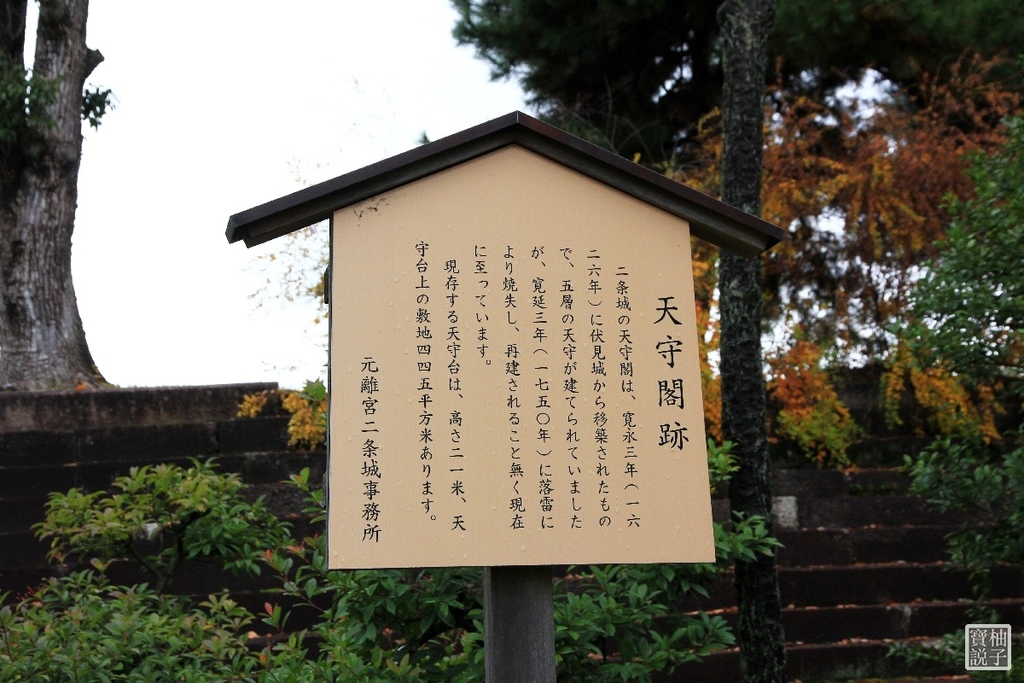 天守閣跡
二条城の天守閣は、寛永三年（一六
二六年）に伏見城から移築されたもの
で、五層の天守が建てられていました
が、寛延三年（一七五〇年）に落雷に
より焼失し、再建されること無く現在
に至っています。
現存する天守台は、高さ二一米、天
守台上の敷地四四五平方米あります。
元離宮二条城事務所
柚子
寶説